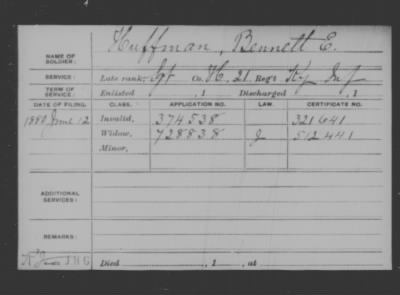 NAME OF SOLDIER: Huffman, Bennett E.
SERVICE: Late rank, Sgt Co. H, 21 Reg't Ky Inf
TERM OF SERVICE: Enlisted , 1 Discharged , 1
DATE OF FILING. CLASS. APPLICATION NO. LAW. CERTIFICATE NO.
1880 June 12 Invalid, 374538 321641
Widow, 728838 J 512441
Minor,
ADDITIONAL SERVICES:
REMARKS:
Died , 1 , at